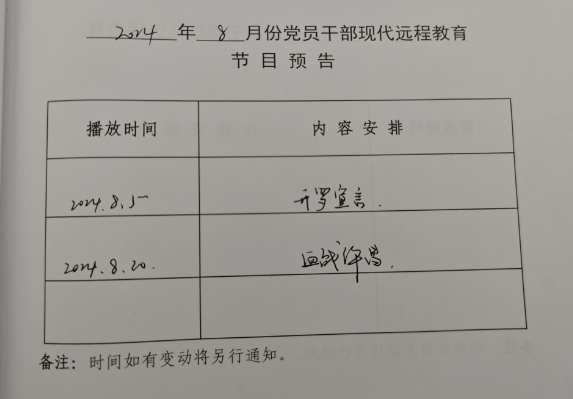 2024 年 8 月份党员干部现代远程教育
节目预告
播放时间 内容安排
2024.8.5 开罗宣言.
2024.8.20. 血战许昌.
备注：时间如有变动将另行通知。